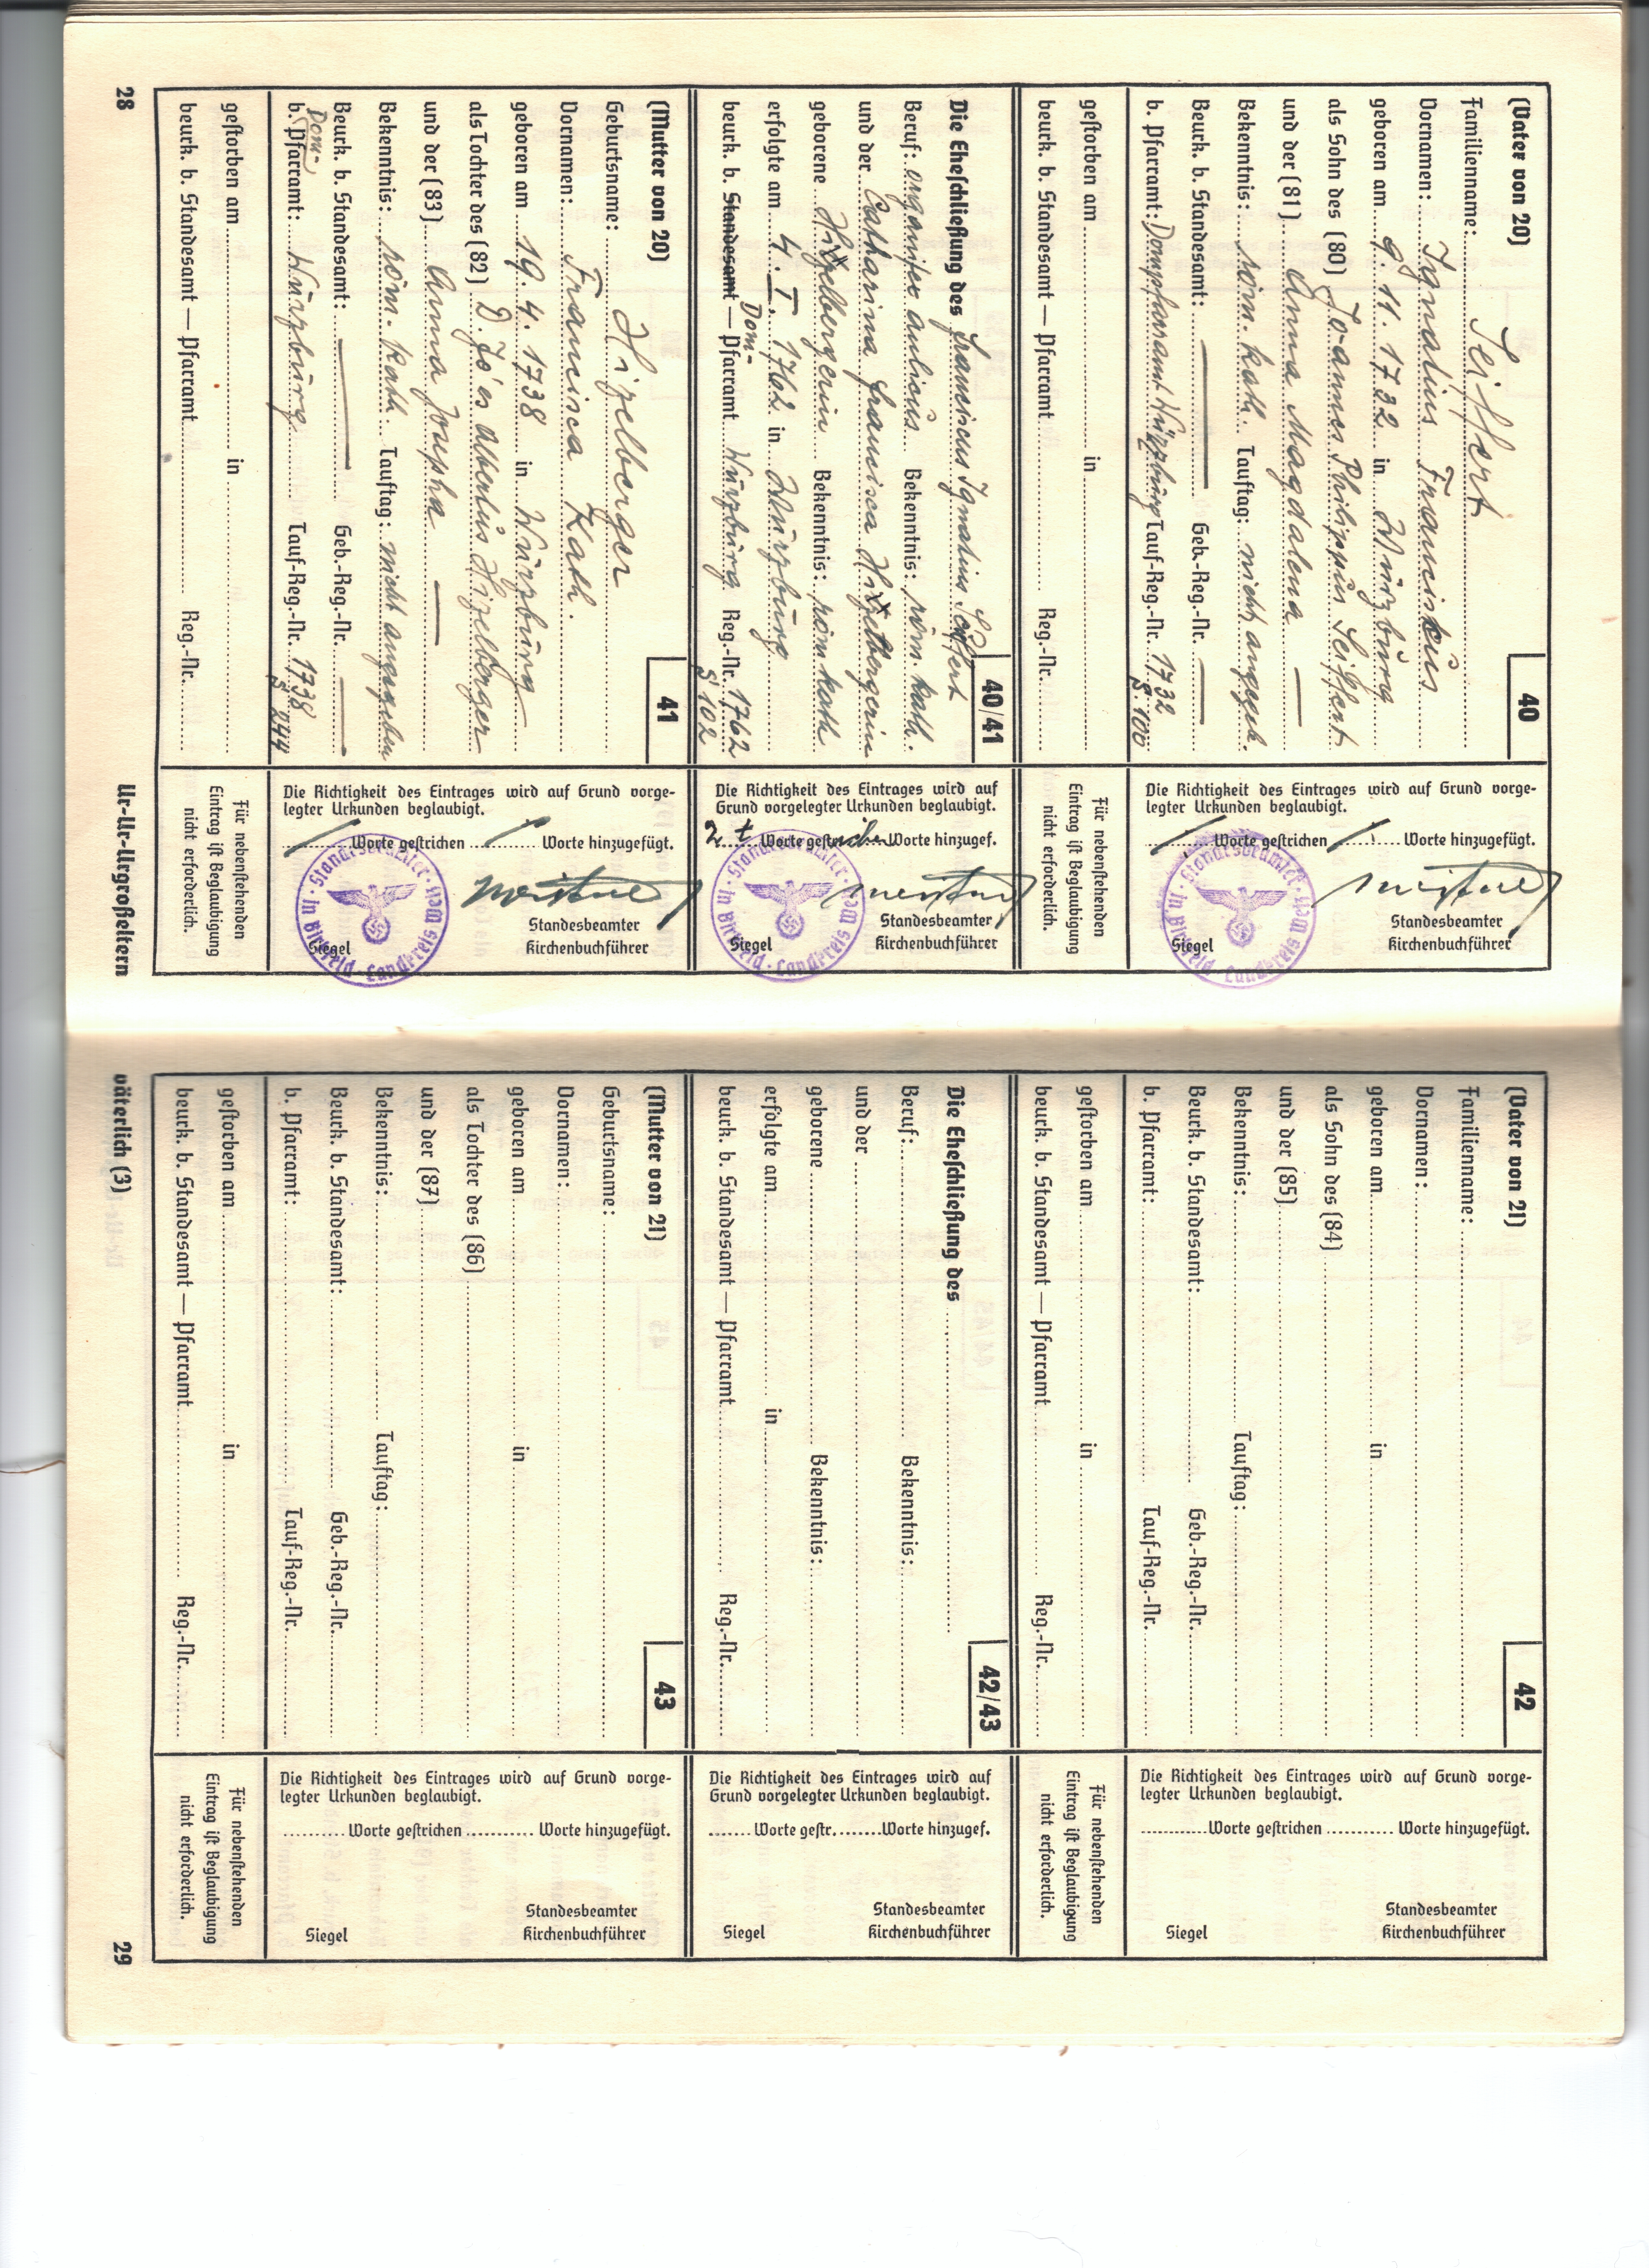 (Vater von 20)
40
Familienname: Seiffert
Vornamen: Ignatius Franciskus
geboren am 9. 11. 1732 in Würzburg
als Sohn des (80) Joannes Philippus Seiffert
und der (81) Anna Magdalena —
Bekenntnis: röm. kath. Tauftag: nicht angegeb.
Beurk. b. Standesamt: — Geb.-Reg.-Nr. —
b. Pfarramt: Dompfarramt Würzburg Tauf-Reg.-Nr. 1732
S. 100
gestorben am in
beurk. b. Standesamt — Pfarramt Reg.-Nr.
Die Richtigkeit des Eintrages wird auf Grund vorge-
legter Urkunden beglaubigt.
/ Worte gestrichen / Worte hinzugefügt.
Standesbeamter
Siegel Kirchenbuchführer
Standesbeamter · in Birkfeld · Landkreis
Für nebenstehenden
Eintrag ist Beglaubigung
nicht erforderlich.
40/41
Die Eheschließung des Franciscus Ignatius Seiffert
Beruf: organista aulicus Bekenntnis: röm. kath.
und der Catharina Francisca Hizelbergerin
geborene Hizelbergerin Bekenntnis: röm kath
erfolgte am 4. I. 1762 in Würzburg
Dom-
beurk. b. Standesamt — Pfarramt Würzburg Reg.-Nr. 1762
S 102
Die Richtigkeit des Eintrages wird auf
Grund vorgelegter Urkunden beglaubigt.
2 t Worte gestrichen Worte hinzugef.
Standesbeamter
Siegel Kirchenbuchführer
(Mutter von 20)
41
Geburtsname: Hizelberger
Vornamen: Francisca Kath.
geboren am 19. 4. 1738 in Würzburg
als Tochter des (82) D. Jo'es Albertus Hizelberger
und der (83) Anna Josepha —
Bekenntnis: röm. kath. Tauftag: nicht angegeben
Beurk. b. Standesamt: — Geb.-Reg.-Nr. —
Dom-
b. Pfarramt: Würzburg Tauf-Reg.-Nr. 1738
S 244
gestorben am in
beurk. b. Standesamt — Pfarramt Reg.-Nr.
Die Richtigkeit des Eintrages wird auf Grund vorge-
legter Urkunden beglaubigt.
/ Worte gestrichen / Worte hinzugefügt.
Standesbeamter
Siegel Kirchenbuchführer
Für nebenstehenden
Eintrag ist Beglaubigung
nicht erforderlich.
28 Ur-Ur-Urgroßeltern
(Vater von 21)
42
Familienname:
Vornamen:
geboren am in
als Sohn des (84)
und der (85)
Bekenntnis: Tauftag:
Beurk. b. Standesamt: Geb.-Reg.-Nr.
b. Pfarramt: Tauf-Reg.-Nr.
gestorben am in
beurk. b. Standesamt — Pfarramt Reg.-Nr.
Die Richtigkeit des Eintrages wird auf Grund vorge-
legter Urkunden beglaubigt.
Worte gestrichen Worte hinzugefügt.
Standesbeamter
Siegel Kirchenbuchführer
Für nebenstehenden
Eintrag ist Beglaubigung
nicht erforderlich.
42/43
Die Eheschließung des
Beruf: Bekenntnis:
und der
geborene Bekenntnis:
erfolgte am in
beurk. b. Standesamt — Pfarramt Reg.-Nr.
Die Richtigkeit des Eintrages wird auf
Grund vorgelegter Urkunden beglaubigt.
Worte gestr. Worte hinzugef.
Standesbeamter
Siegel Kirchenbuchführer
(Mutter von 21)
43
Geburtsname:
Vornamen:
geboren am in
als Tochter des (86)
und der (87)
Bekenntnis: Tauftag:
Beurk. b. Standesamt: Geb.-Reg.-Nr.
b. Pfarramt: Tauf-Reg.-Nr.
gestorben am in
beurk. b. Standesamt — Pfarramt Reg.-Nr.
Die Richtigkeit des Eintrages wird auf Grund vorge-
legter Urkunden beglaubigt.
Worte gestrichen Worte hinzugefügt.
Standesbeamter
Siegel Kirchenbuchführer
Für nebenstehenden
Eintrag ist Beglaubigung
nicht erforderlich.
väterlich (3) 29